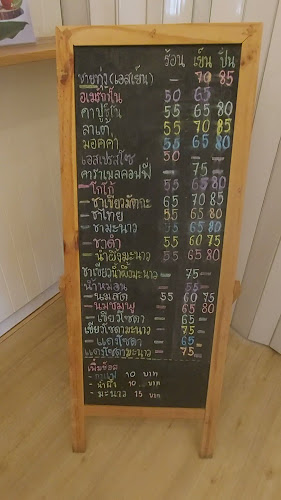 ร้อน เย็น ปั่น
(เอสเย็น) - 70 85
อเมริกาโน่ 50 65
คาปูชิโน่ 55 65 80
ลาเต้ 55 70 85
มอคค่า 55 65 80
เอสเปรสโซ่ 50 - -
คาราเมลคอฟฟี่ - 75 -
- โกโก้ 55 65 80
- ชาเขียวมัทฉะ 65 70 85
- ชาไทย 55 65 80
- ชามะนาว 55 65 80
- ชาดำ 55 60 75
- น้ำผึ้งมะนาว 55 65 80
ชาเขียวน้ำผึ้งมะนาว - 75 -
น้ำหม่อน - 55 -
- นมสด 55 60 75
- นมชมพู - 65 80
- เขียวโซดา - 65 -
เขียวโซดามะนาว - 75 -
- แดงโซดา - 65 -
แดงโซดามะนาว - 75 -
เพิ่มช็อต
- กาแฟ 10 บาท
- น้ำผึ้ง 10 บาท
- มะนาว 15 บาท